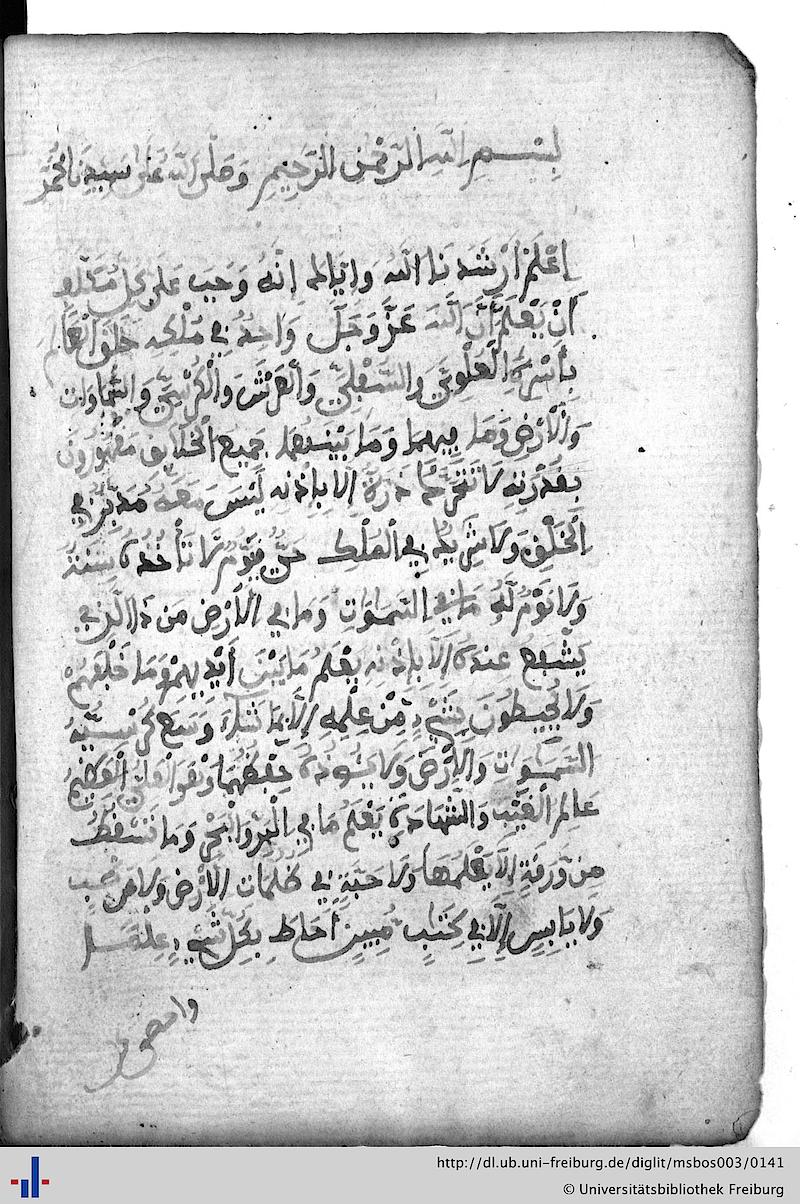 بسم الله الرحمن الرحيم وصلى الله على سيدنا محمد
اعلم ارشدنا الله واياك انه وجب على كل مكلف
أن يعلم أن الله عز وجل واحد في ملكه خلق العالم
بأسره العلوي والسفلي والعرش والكرسي والسماوات
والارض وما فيهما وما بينهما جميع الخلايق مقهورون
بقدرته لا تتحرك ذرة الا باذنه ليس معه مدبر في
الخلق ولا شريك في الملك حي قيوم لا تأخذه سنة
ولا نوم له ما في السموات وما في الارض من ذا الذي
يشفع عنده الا باذنه يعلم ما بين أيديهم وما خلفهم
ولا يحيطون بشيء من علمه إلا بما شاء وسع كرسيه
السموات والارض ولا يئوده حفظهما وهو العلي العظيم
عالم الغيب والشهادة يعلم ما في البر والبحر وما تسقط
من ورقة إلا يعلمها ولا حبة في ظلمات الارض ولا رطب
ولا يابس إلا في كتب مبين أحاط بكل شيء علما
واحصى
http://dl.ub.uni-freiburg.de/diglit/msbos003/0141
© Universitätsbibliothek Freiburg